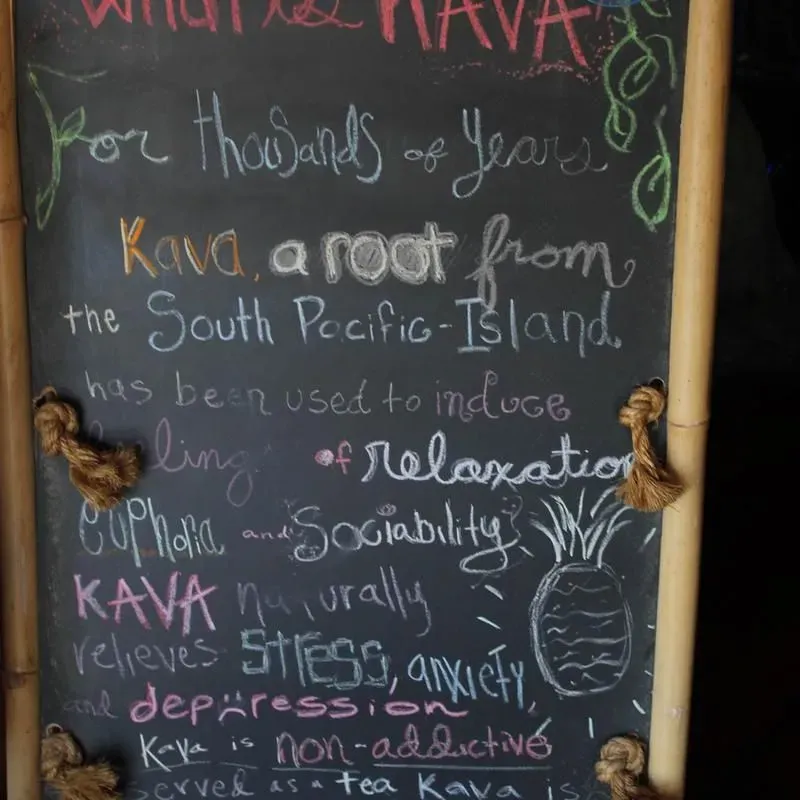 What is KAVA
For thousands of Years
Kava, a root from
the South Pacific-Island
has been used to induce
of relaxation
euphoria and Sociability
KAVA naturally
relieves STRESS, anxiety,
and depression
Kava is non-addictive
served as a tea Kava is